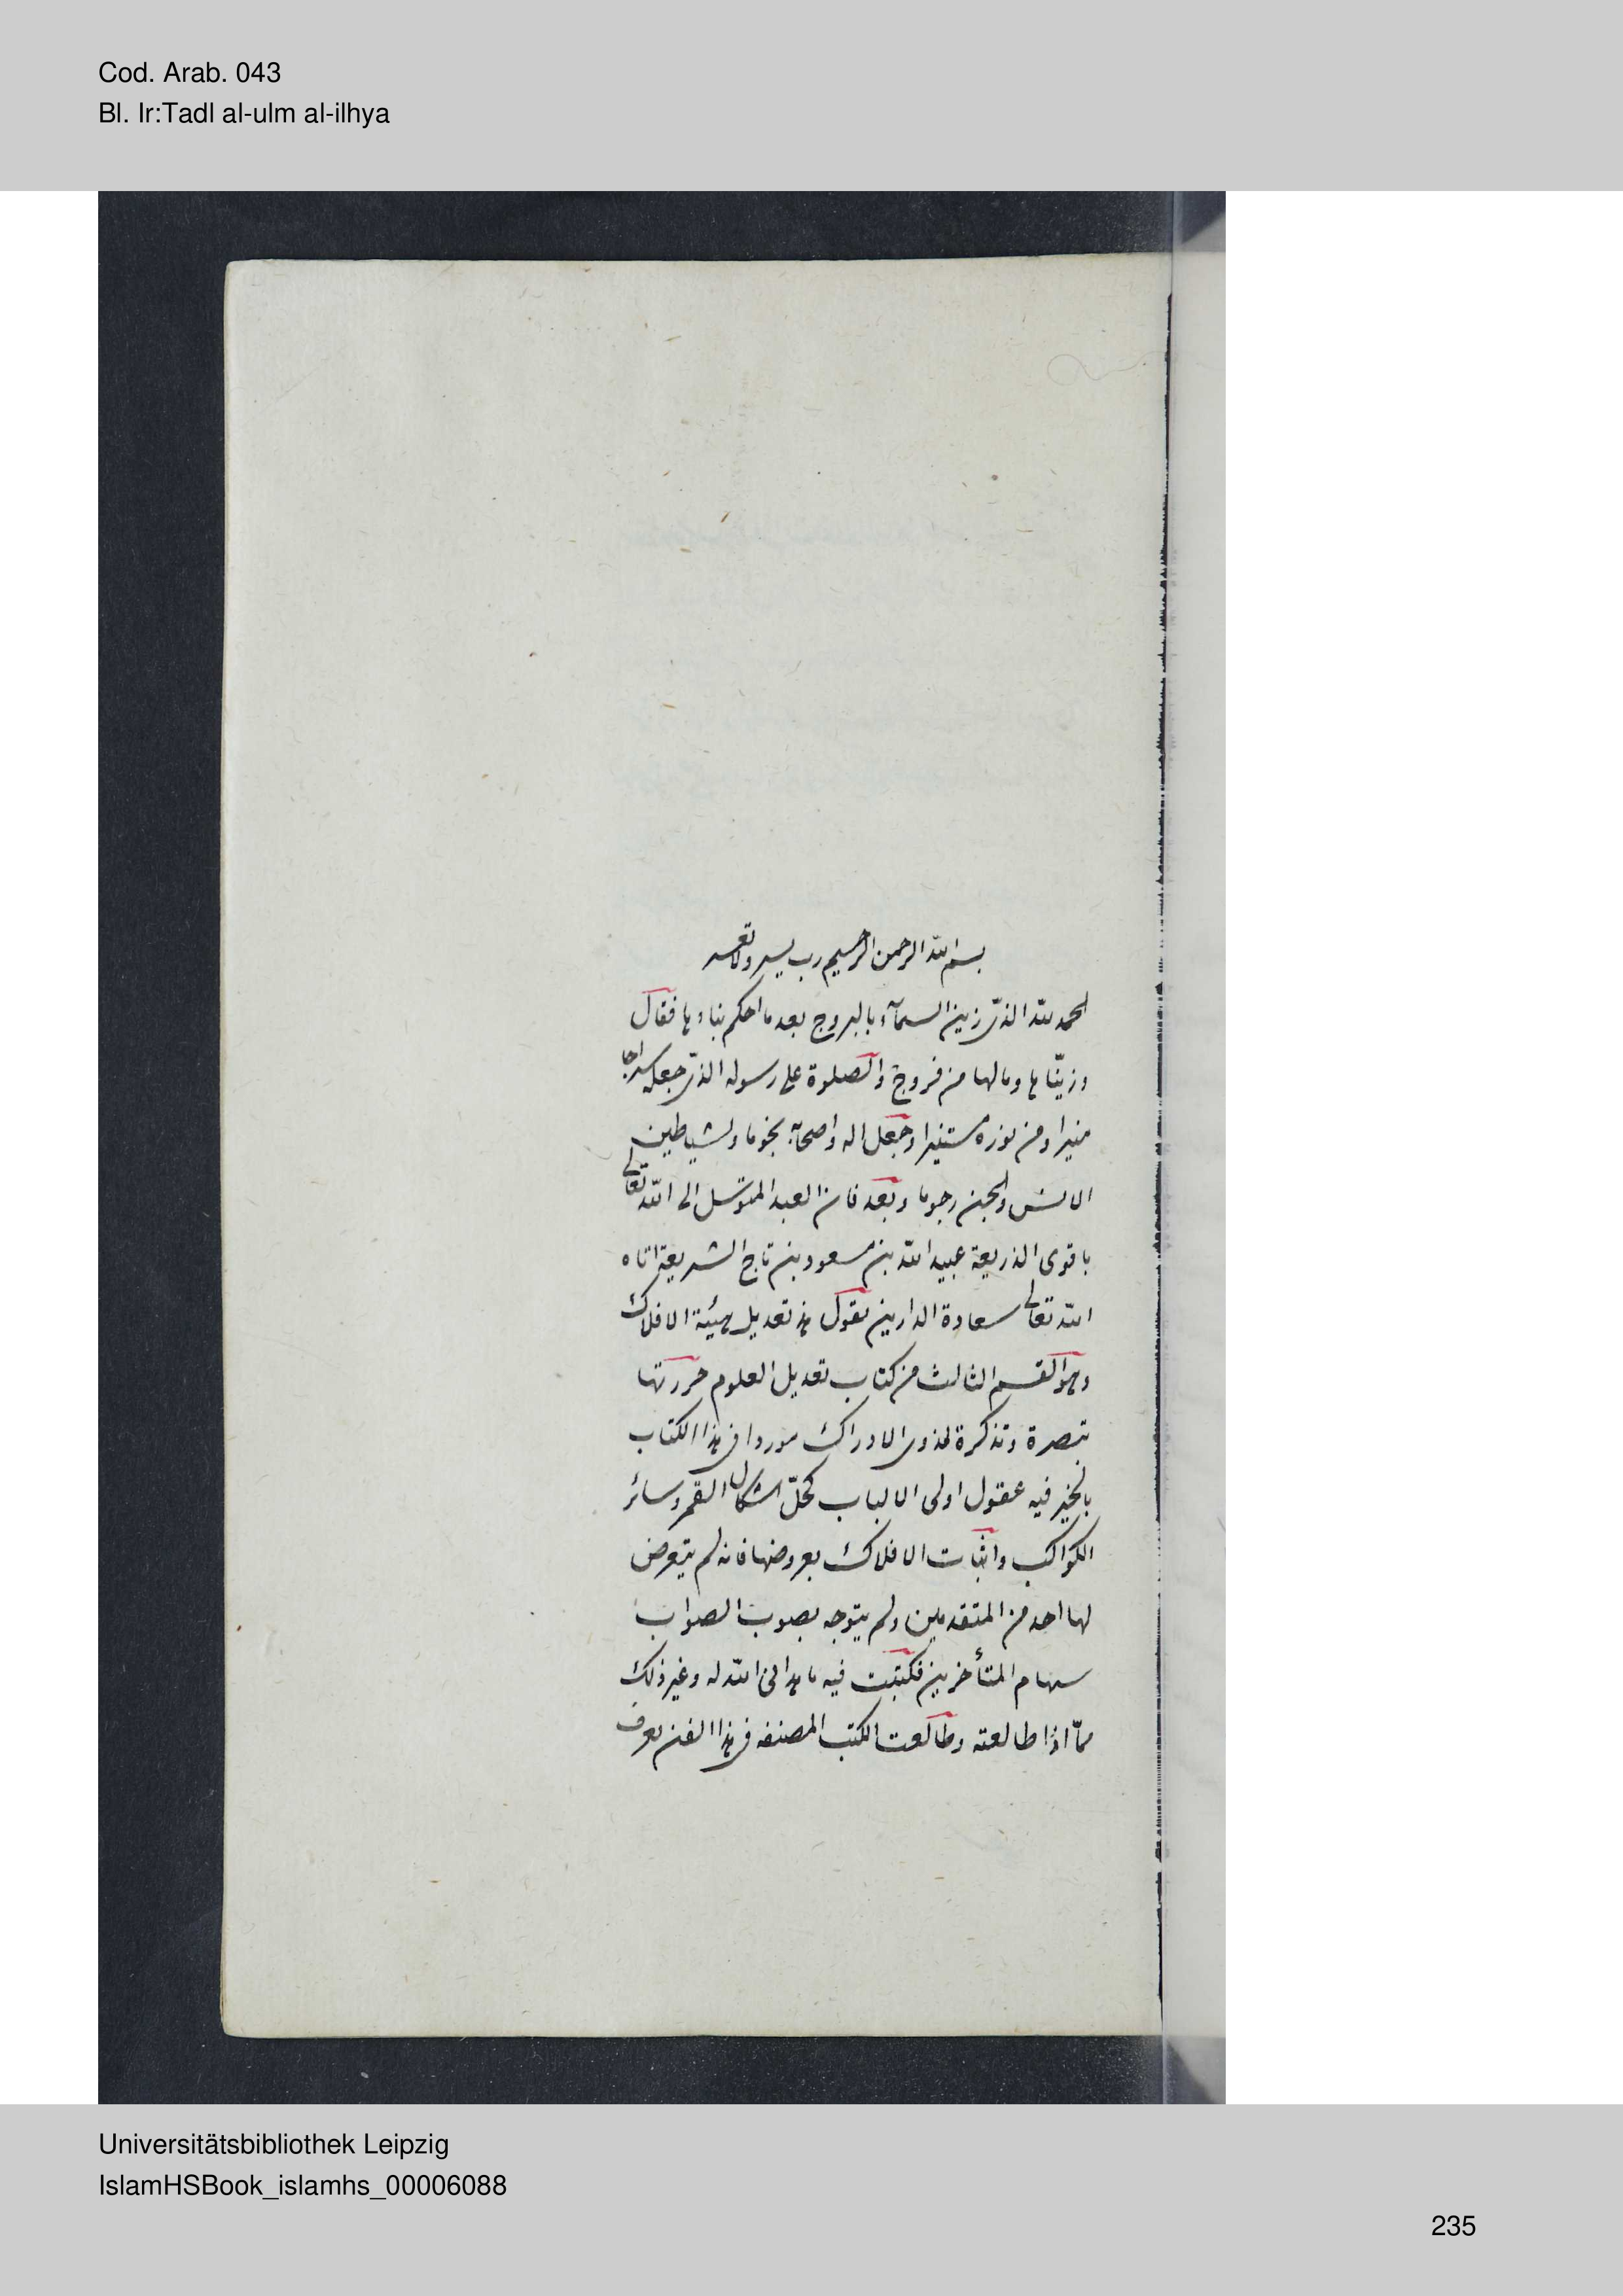 Cod. Arab. 043
Bl. Ir:Tadl al-ulm al-ilhya
بسم الله الرحمن الرحيم رب يسر ولا تعسر
الحمد لله الذى زين السمآء بالبروج بعد ما احكم بناءها فقال
وزيناها وما لها من فروج والصلوة على رسوله الذى جعله سراجا
منيرا ومن نوره مستنيرا وجعل اله واصحابه نجوما ولشياطين
الانس والجن رجوما وبعد فان العبد المتوسل الى الله تعالى
باقوى الذريعة عبيد الله بن مسعود بن تاج الشريعة اتاه
الله تعالى سعادة الدارين يقول هذ تعديل هيئة الافلاك
وهو القسم الثالث من كتاب تعديل العلوم حررتها
تبصرة وتذكرة لذوى الادراك موردا فى هذا الكتاب
فيه عقول اولى الالباب كحل اشكال القمر وسائر
الكواكب واثبات الافلاك بعروضها فانه لم يتعرض
لها احد من المتقدمين ولم يتوجه بصوب الصواب
سهام المتأخرين فكتبت فيه ما هدانى الله له وغير ذلك
مما اذا طالعته وطالعت الكتب المصنفه فى هذا الفن تعرف
Universitätsbibliothek Leipzig
IslamHSBook_islamhs_00006088
235